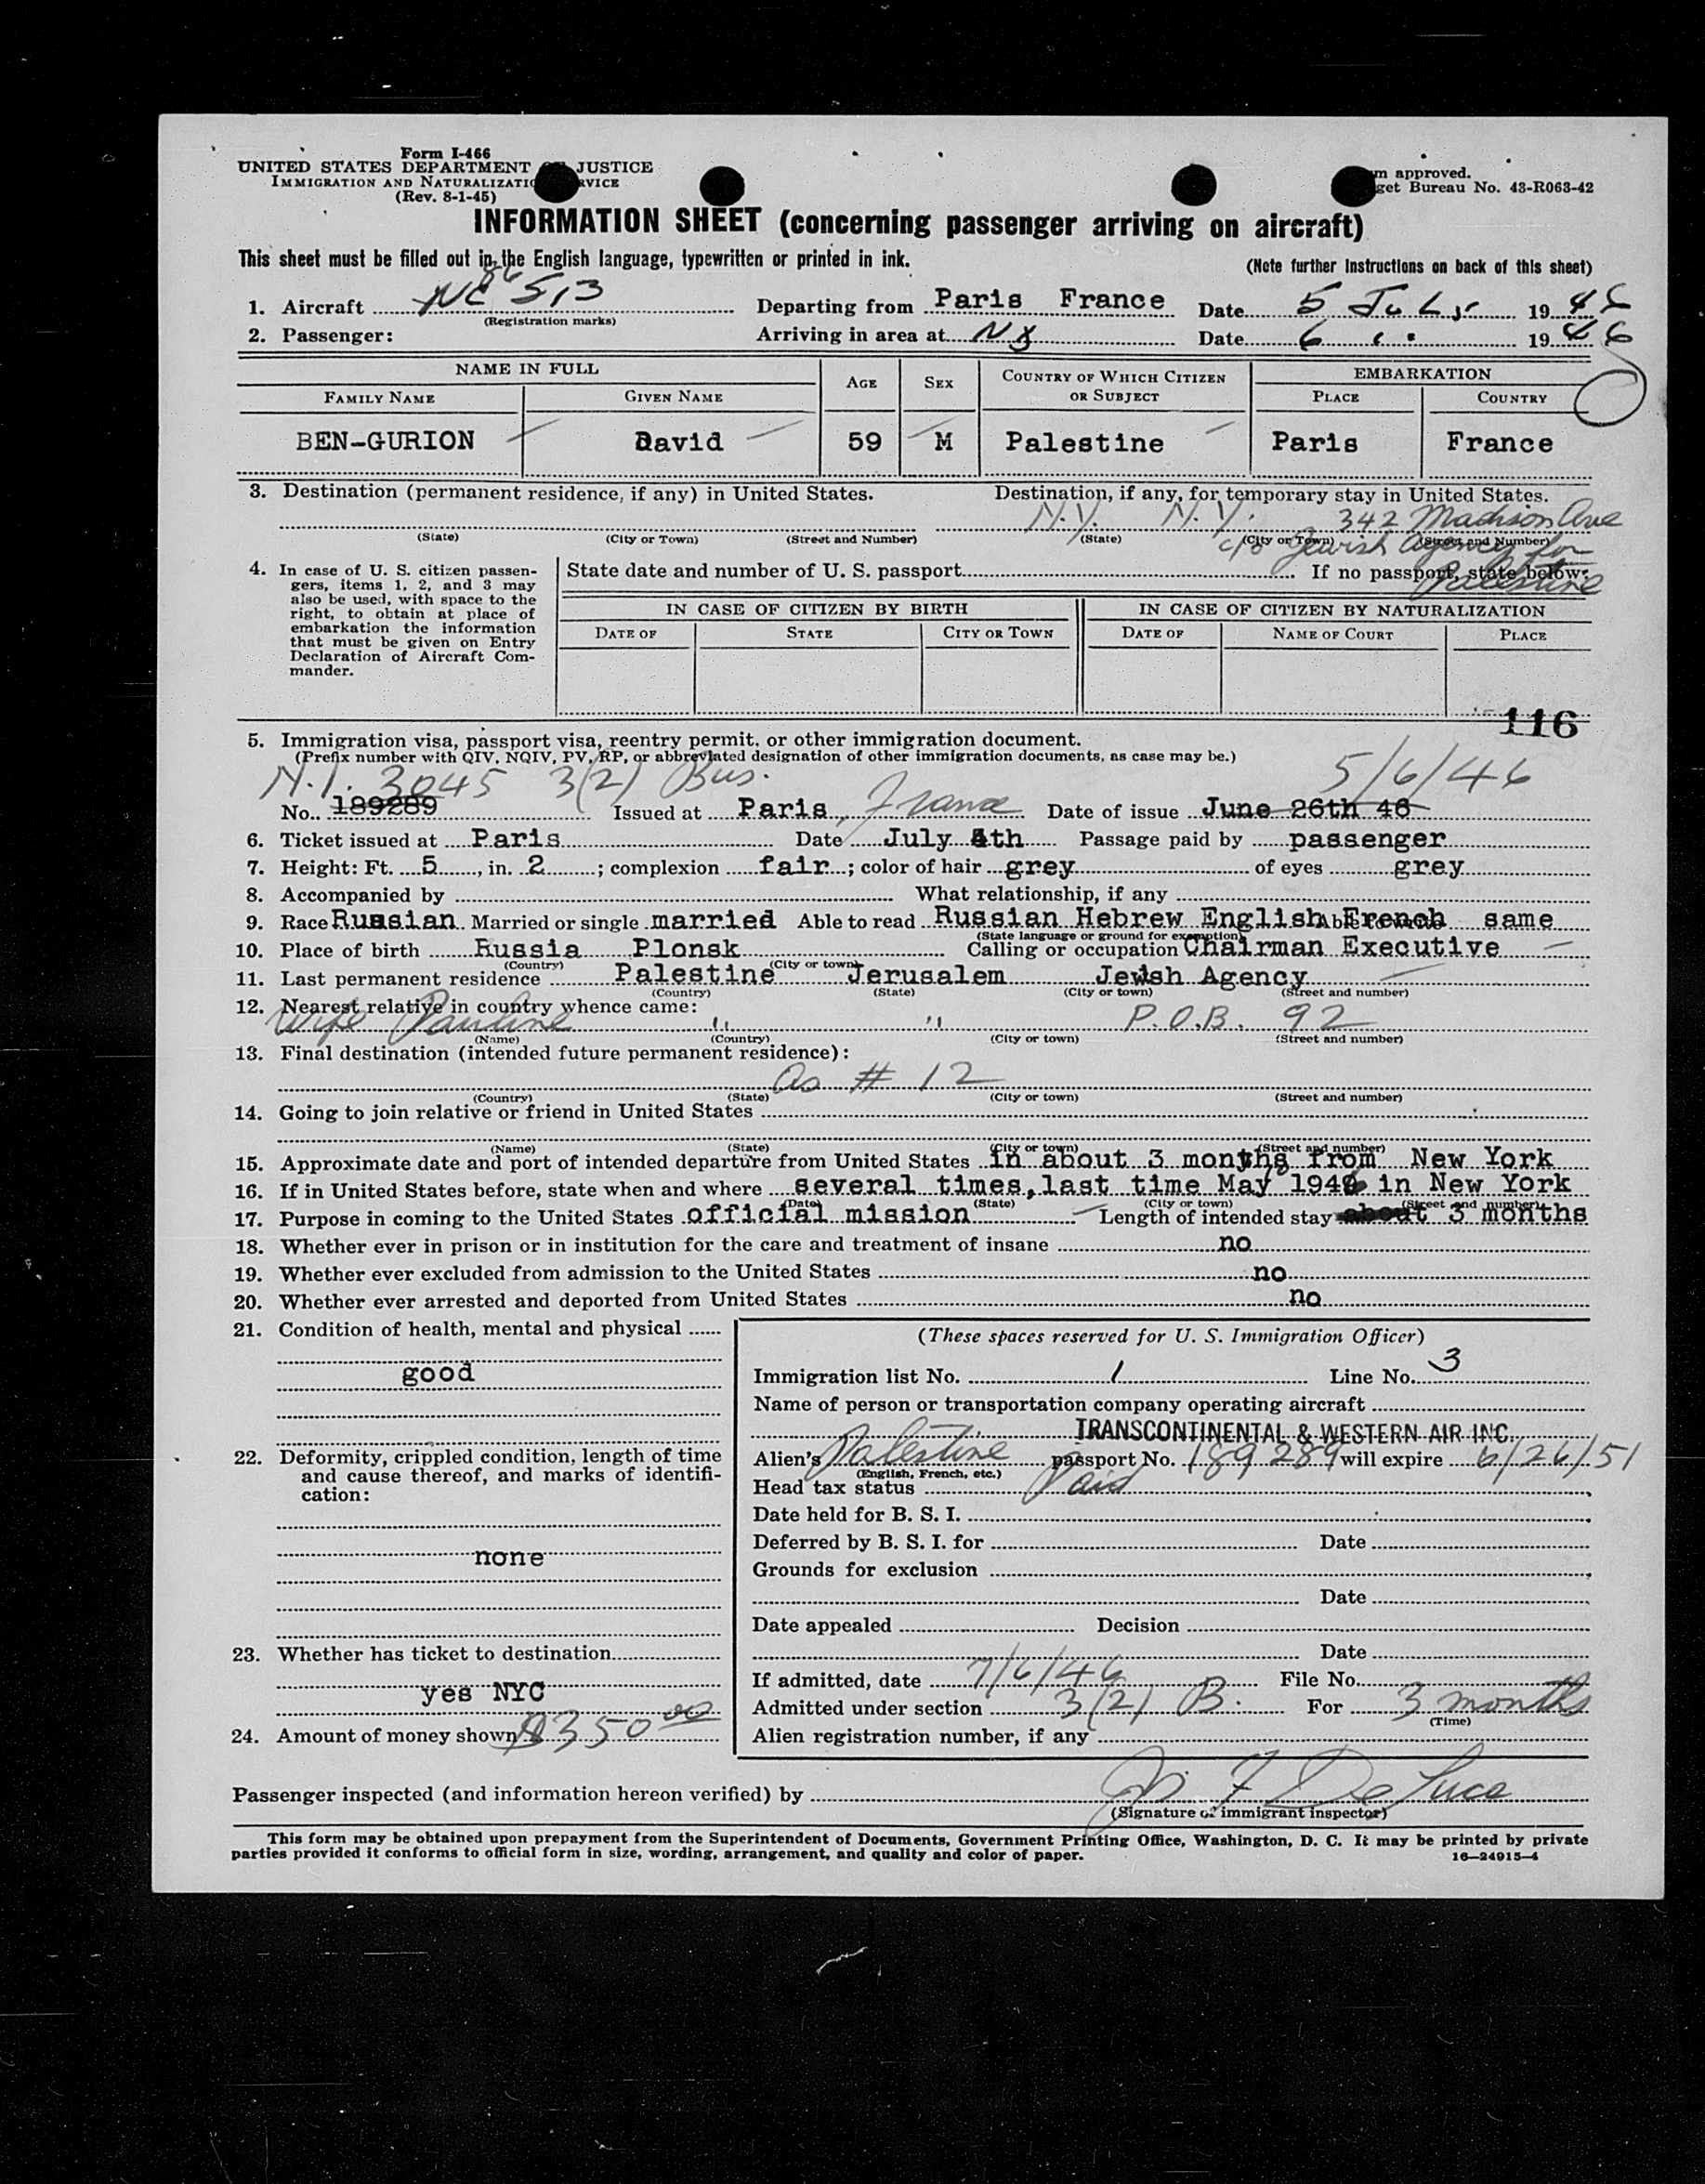 Form I-466
UNITED STATES DEPARTMENT JUSTICE
IMMIGRATION AND NATURALIZATI RVICE
(Rev. 8-1-45)
m approved.
get Bureau No. 43-R063-42
INFORMATION SHEET (concerning passenger arriving on aircraft)
This sheet must be filled out in the English language, typewritten or printed in ink.
(Note further instructions on back of this sheet)
1. Aircraft NC 86513 Departing from Paris France Date 5 July 1946
(Registration marks)
2. Passenger: Arriving in area at NY Date 6 " 1946
NAME IN FULL AGE SEX COUNTRY OF WHICH CITIZEN OR SUBJECT EMBARKATION
FAMILY NAME GIVEN NAME PLACE COUNTRY
BEN-GURION David 59 M Palestine Paris France
3. Destination (permanent residence, if any) in United States. Destination, if any, for temporary stay in United States.
N.Y. N.Y. 342 Madison Ave
(State) (City or Town) (Street and Number) (State) (City or Town) (Street and Number)
c/o Jewish Agency for
Palestine
4. In case of U. S. citizen passengers, items 1, 2, and 3 may also be used, with space to the right, to obtain at place of embarkation the information that must be given on Entry Declaration of Aircraft Commander.
State date and number of U. S. passport If no passport, state below:
IN CASE OF CITIZEN BY BIRTH IN CASE OF CITIZEN BY NATURALIZATION
DATE OF STATE CITY OR TOWN DATE OF NAME OF COURT PLACE
116
5. Immigration visa, passport visa, reentry permit, or other immigration document.
(Prefix number with QIV, NQIV, PV, RP, or abbreviated designation of other immigration documents, as case may be.)
N.I. 3045 3(2) Bus. 5/6/46
No. 189289 Issued at Paris, France Date of issue June 26th 46
6. Ticket issued at Paris Date July 4th Passage paid by passenger
7. Height: Ft. 5, in. 2; complexion fair; color of hair grey of eyes grey
8. Accompanied by What relationship, if any
9. Race Russian Married or single married Able to read Russian Hebrew English French Able to write same
(State language or ground for exemption)
10. Place of birth Russia Plonsk Calling or occupation Chairman Executive
(Country) (City or town)
11. Last permanent residence Palestine Jerusalem Jewish Agency
(Country) (State) (City or town) (Street and number)
12. Nearest relative in country whence came:
Wife Pauline " " P.O.B. 92
(Name) (Country) (City or town) (Street and number)
13. Final destination (intended future permanent residence):
As # 12
(Country) (State) (City or town) (Street and number)
14. Going to join relative or friend in United States
(Name) (State) (City or town) (Street and number)
15. Approximate date and port of intended departure from United States in about 3 months from New York
16. If in United States before, state when and where several times, last time May 1946 in New York
(Date) (State) (City or town) (Street and number)
17. Purpose in coming to the United States official mission Length of intended stay about 3 months
18. Whether ever in prison or in institution for the care and treatment of insane no
19. Whether ever excluded from admission to the United States no
20. Whether ever arrested and deported from United States no
21. Condition of health, mental and physical
good
22. Deformity, crippled condition, length of time and cause thereof, and marks of identification:
none
23. Whether has ticket to destination
yes NYC
24. Amount of money shown $350 00
(These spaces reserved for U. S. Immigration Officer)
Immigration list No. 1 Line No. 3
Name of person or transportation company operating aircraft
TRANSCONTINENTAL & WESTERN AIR INC.
Alien's Palestine passport No. 189289 will expire 6/26/51
(English, French, etc.)
Head tax status Paid
Date held for B. S. I.
Deferred by B. S. I. for Date
Grounds for exclusion
Date
Date appealed Decision
Date
If admitted, date 7/6/46 File No.
Admitted under section 3(2) B. For 3 months
(Time)
Alien registration number, if any
Passenger inspected (and information hereon verified) by De Luca
(Signature of immigrant inspector)
This form may be obtained upon prepayment from the Superintendent of Documents, Government Printing Office, Washington, D. C. It may be printed by private
parties provided it conforms to official form in size, wording, arrangement, and quality and color of paper. 16—24915-4